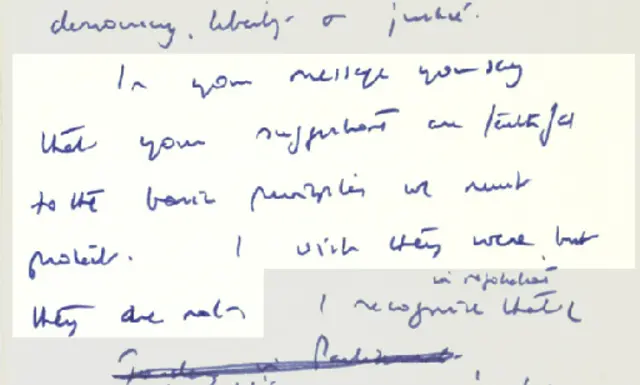 democracy, liberty & justice.
In your message you say
that your suggestions are faithful
to the basic principles we must
protect. I wish they were, but
in negotiations
they are not. I recognise that